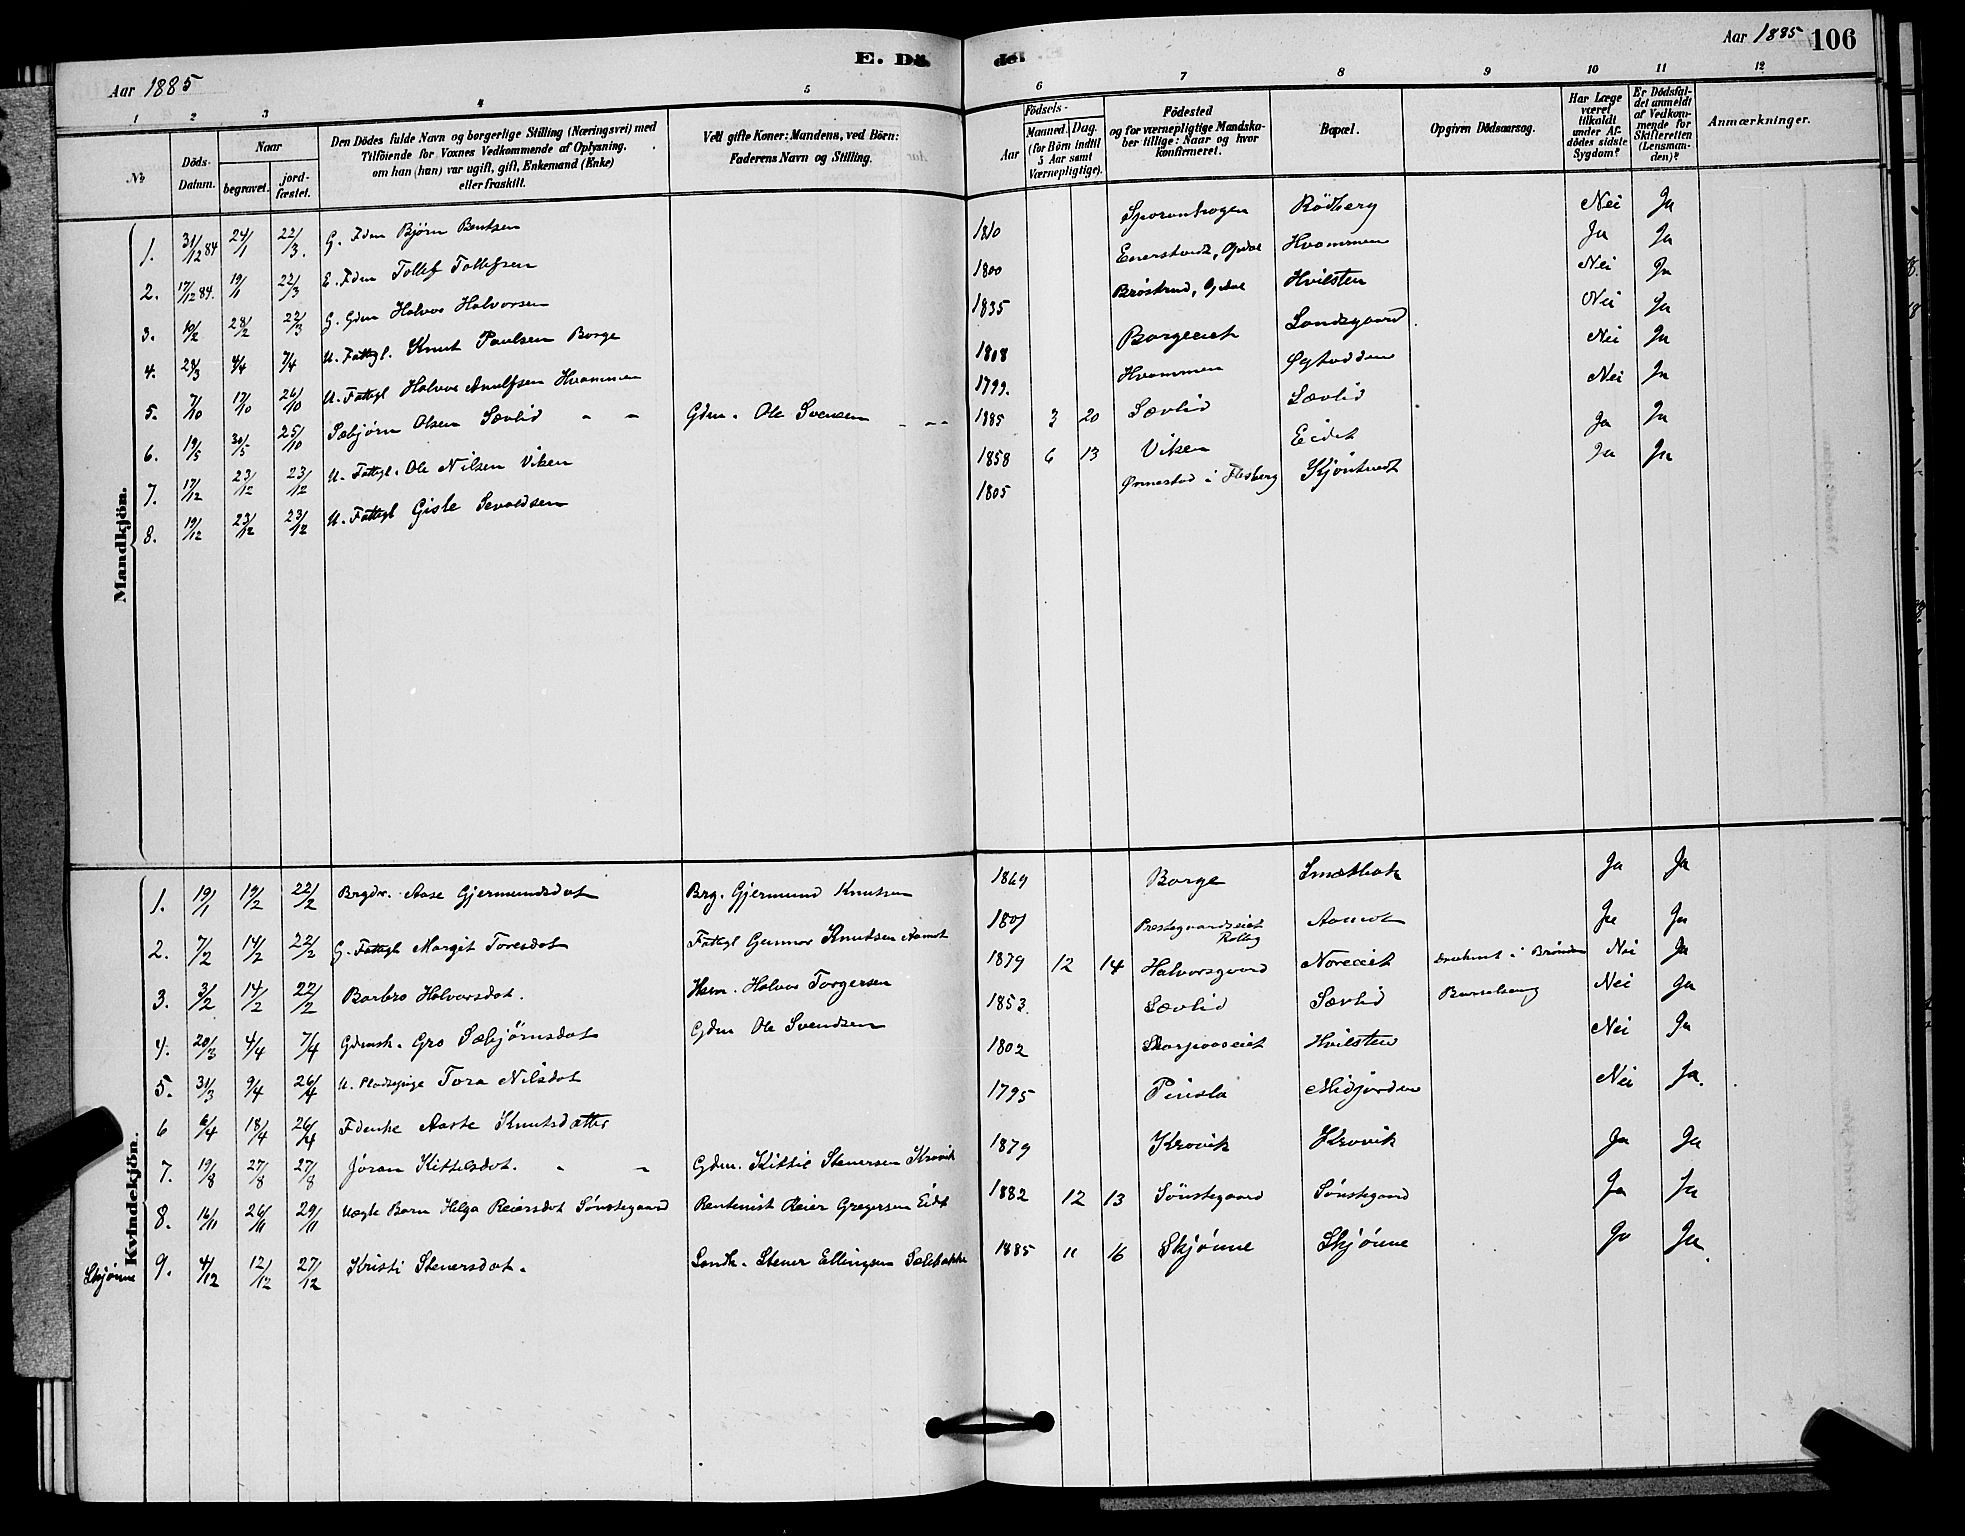 Aar 1885
E. Dö- de.
Aar 1885 106
1 2 3 4 5 6 7 8 9 10 11 12
No
Döds-Datum.
Naar
begravet.
jord-fæstet.
Den Dödes fulde Navn og borgerlige Stilling (Næringsvei) med
Tilföiende for Voxnes Vedkommende af Oplysning,
om han (hun) var ugift, gift, Enkemand (Enke)
eller fraskilt.
Ved gifte Koner: Mandens, ved Börn:
Faderens Navn og Stilling.
Födsels-
Aar
Maaned. Dag.
(for Börn indtil
5 Aar samt
Værnepligtige).
Födested
og for værnepligtige Mandska-
ber tillige: Naar og hvor
konfirmeret.
Bopæl.
Opgiven Dödsaarsag.
Har Læge
været
tilkaldt
under Af-
dødes sidste
Sygdom?
Er Dödsfal-
det anmeldt
af Vedkom-
mende for
Skifteretten
(Lensman-
den)?
Anmærkninger.
Mandkjön.
1. 31/12 84 24/1 22/3. G. Fdm Björn Bentsen 1810 Rödberg Nei Ja
2. 17/12 84. 19/1 22/3 E. Fdm Tollef Tollefsen 1800 Enerstvedt, Opdal Hvammen Ja Ja
3. 10/2 28/2 22/3 G. Gdm Halvor Halvorsen 1835 Bröstrud, Opdal Hvilsten Nei Ja
4. 28/3 4/4 7/4 U. Fattgl. Knut Paulsen Borge 1808 Borgeeiet Landsgaard Nei Ja
5. 7/10 17/10 26/10 U. Fattgl Halvor Hvammen 1799. Hvammen Øygardden Nei Ja
6. 19/5 30/5 25/10 Sæbjørn Olsen Sævlid " " Gdm. Ole Svensen " " 1885 3 20 Sævlid Sævlid Nei Ja
7. 17/12 23/12 23/12 U. Fattgl. Ole Nilsen Viken 1858 6 13 Viken Eidet Ja Ja
8. 19/12 23/12 23/12 U. Fattgl Gisle Sevaldsen 1805 Ormestad i Flesberg Skjöntvedt Ja Ja
Kvindekjön.
1. 19/1 19/2 22/2 Brgdr. Aase Gjermundsdat Brg. Gjermund Knutsen 1869 Borge Smætbak Ja Ja
2. 7/2 14/2 22/2 G. Fattgl Margit Toresdat Fattgl Gunnar Knutsen Aamot 1801 Prestegaardseiet Rollag Aamot Ja Ja
3. 3/2 14/2 22/2 Barbro Halvorsdat. Hsm. Halvor Torgersen 1879 12 14 Halvorsgaard Noreeiet druknet i Brønden Nei Ja
4. 20/3 4/4 7/4 Gdmsk. Gro Sæbjørnsdat Gdm Ole Svendsen 1853. Sævlid Sævlid Barselseng Nei Ja
5. 31/3 9/4 26/4 Tora Nilsdat 1802 Skarpaaseiet Hvilsten Nei Ja
6 6/4 18/4 26/4 Fdenke Aaste Knutsdatter 1795 Pinsla Midjorden Nei Ja.
7. 19/8 27/8 27/8 Jöran Kittelsdat. " " Gdm. Kittil Stenersen Kravik 1879 Kravik Kravik Ja Ja
8. 16/11 26/11 29/11 Uægte Barn Helga Reiersdat Sønstegaard Rentenist Reier Gregersen Eidt 1882 12 13 Sönstegaard Sønstegaard Ja Ja
Skjønne 9. 4/12 12/12 27/12 Kristi Stenersdat. Landh. Stener Ellingsen Sælebakke 1885 11 16 Skjønne Skjönne Ja Ja.